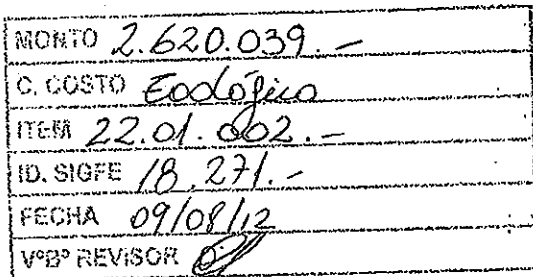 MONTO 2.620.039.-
C. COSTO Zoológico
ITEM 22.01.002.-
ID. SIGFE 18.271.-
FECHA 09/08/12
VºBº REVISOR